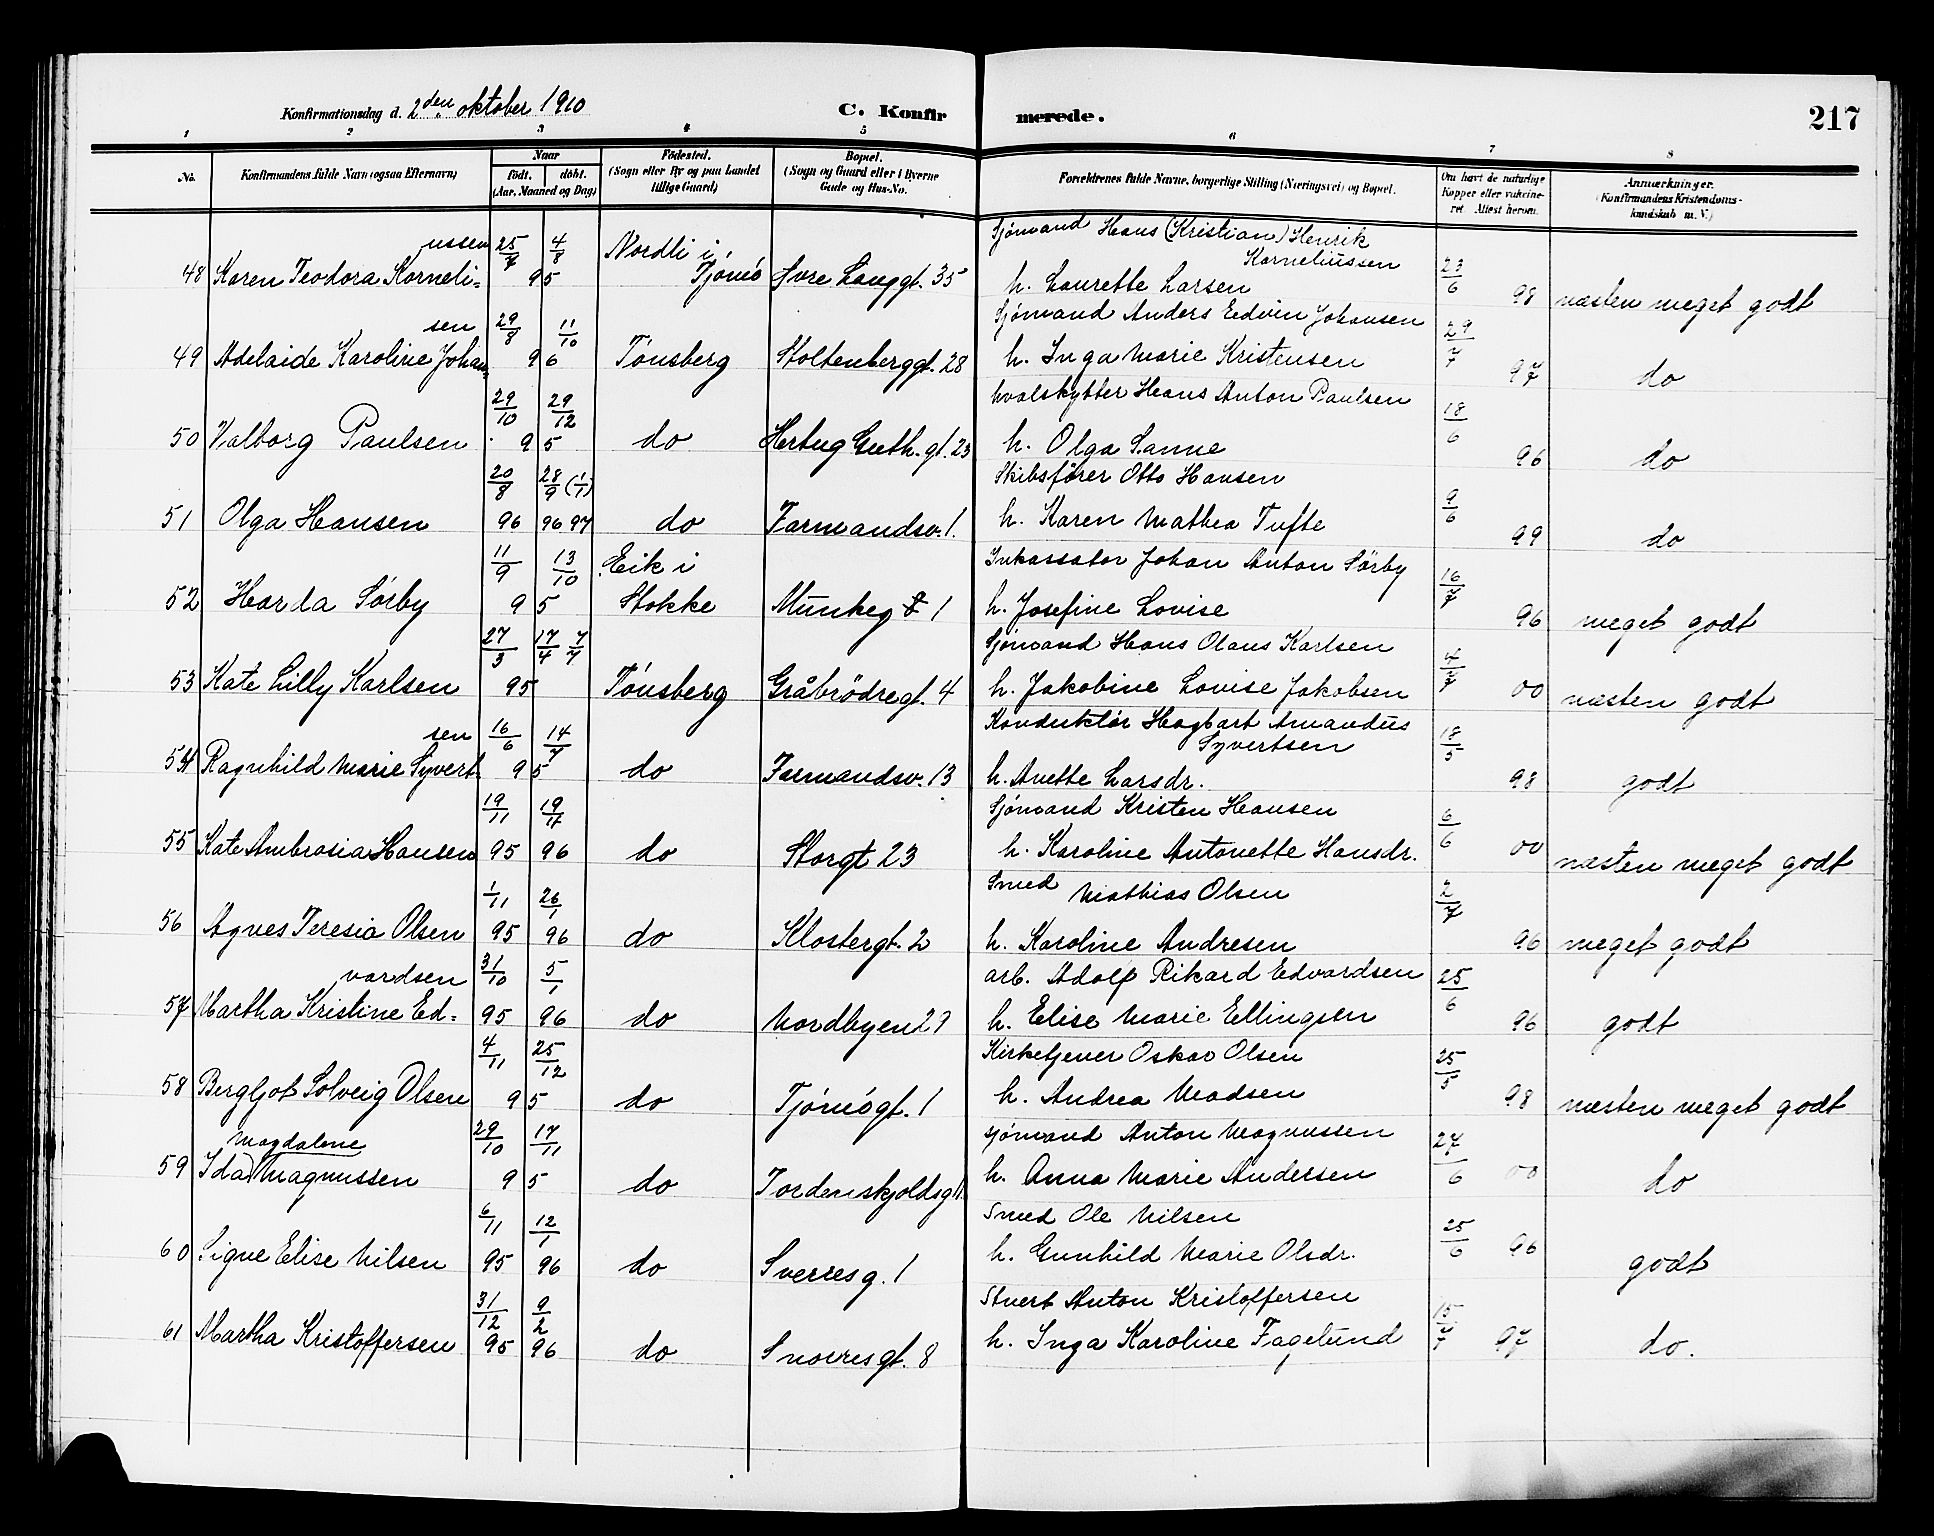 Konfirmationsdag d. 2den oktober 1910 C. Konfirmerede. 217
1 2 3 4 5 6 7 8
No. Konfirmandens fulde Navn (ogsaa Efternavn) Naar födt. döbt. (Aar, Maaned og Dag) Födested. (Sogn eller By og paa Landet tillige Gaard) Bopæl. (Sogn og Gaard eller i Byerne Gade og Hus-No. Forældrenes fulde Navne, borgerlige Stilling (Næringsvei) og Bopæl. Om havt de naturlige Kopper eller vaksineret. Attest herom. Anmærkninger. (Konfirmandens Kristendomskundskab m. V.)
ussen 25/7 4/8 Nordli i Sjømand Hans (Kristian) Henrik Korneliussen
48 Karen Teodora Korneli= 95 Tjømø Øvre Langgt. 35 h. Laurette Larsen 23/6 98 næsten meget godt
sen 29/8 11/10 Sjømand Anders Edvin Johansen
49 Adelaide Karoline Johan= 96 Tønsberg Stoltenberggt. 28 h. Inga Marie Kristensen 29/7 97 do
29/10 29/12 Hvalskytter Hans Anton Paulsen
50 Valborg Paulsen 95 do Hertug Guth. gt. 23 h. Olga Sanne 18/6 96 do
20/8 28/9 (1/1) Skibsfører Otto Hansen
51 Olga Hansen 96 96 97 do Farmandsv. 1. h. Karen Mathea Tufte 9/6 99 do
11/9 13/10 Eik i Inkassator Johan Anton Sörby
52 Harda Sörby 95 Stokke Munkeg 1 h. Josefine Lovise 16/7 96 meget godt
27/3 17/4 7/7 Sjømand Hans Olaus Karlsen
53 Kate Lilly Karlsen 95 Tønsberg Gråbrödregt. 4 h. Jakobine Lovise Jakobsen 4/7 00 næsten godt
sen 16/6 14/7 Konduktör Hagbart Amandus Syvertsen
54 Ragnhild Marie Syvert- 95 do Farmandsv. 13 h. Anette Larsdr. 18/5 98 godt
19/11 19/11 Sjømand Kristen Hansen
55 Kate Ambrosia Hansen 95 96 do Storgt 23 h. Karoline Antonette Hansdr. 6/6 00 næsten meget godt
1/11 26/1 Smed Mathias Olsen
56 Agnes Teresia Olsen 95 96 do Klostergt. 2 h. Karoline Andresen 2/7 96 meget godt
vardsen 31/10 5/1 arb. Adolf Rikard Edvardsen
57 Martha Kristine Ed= 95 96 do Nordbyen 27 h. Elise Marie Ellingsen 25/6 96 godt
4/11 25/12 Kirketjener Oskar Olsen
58 Bergljot Solveig Olsen 95 do Tjømøgt. 1 h. Andrea Madsen 25/5 98 næsten meget godt
Magdalene 29/10 17/11 Sjømand Anton Magnussen
59 Ida Magnussen 95 do Tordenskjoldsg h. Anna Marie Andersen 27/6 00 do
6/11 12/1 Smed Ole Nilsen
60 Signe Elise Nilsen 95 96 do Sverresg. 1 h. Gunhild Marie Olsdr. 25/6 96 godt
31/12 9/2 Stuert Anton Kristoffersen
61 Martha Kristoffersen 95 96 do Snorresgt. 8 h. Inga Karoline Fagelund 15/7 97 do.